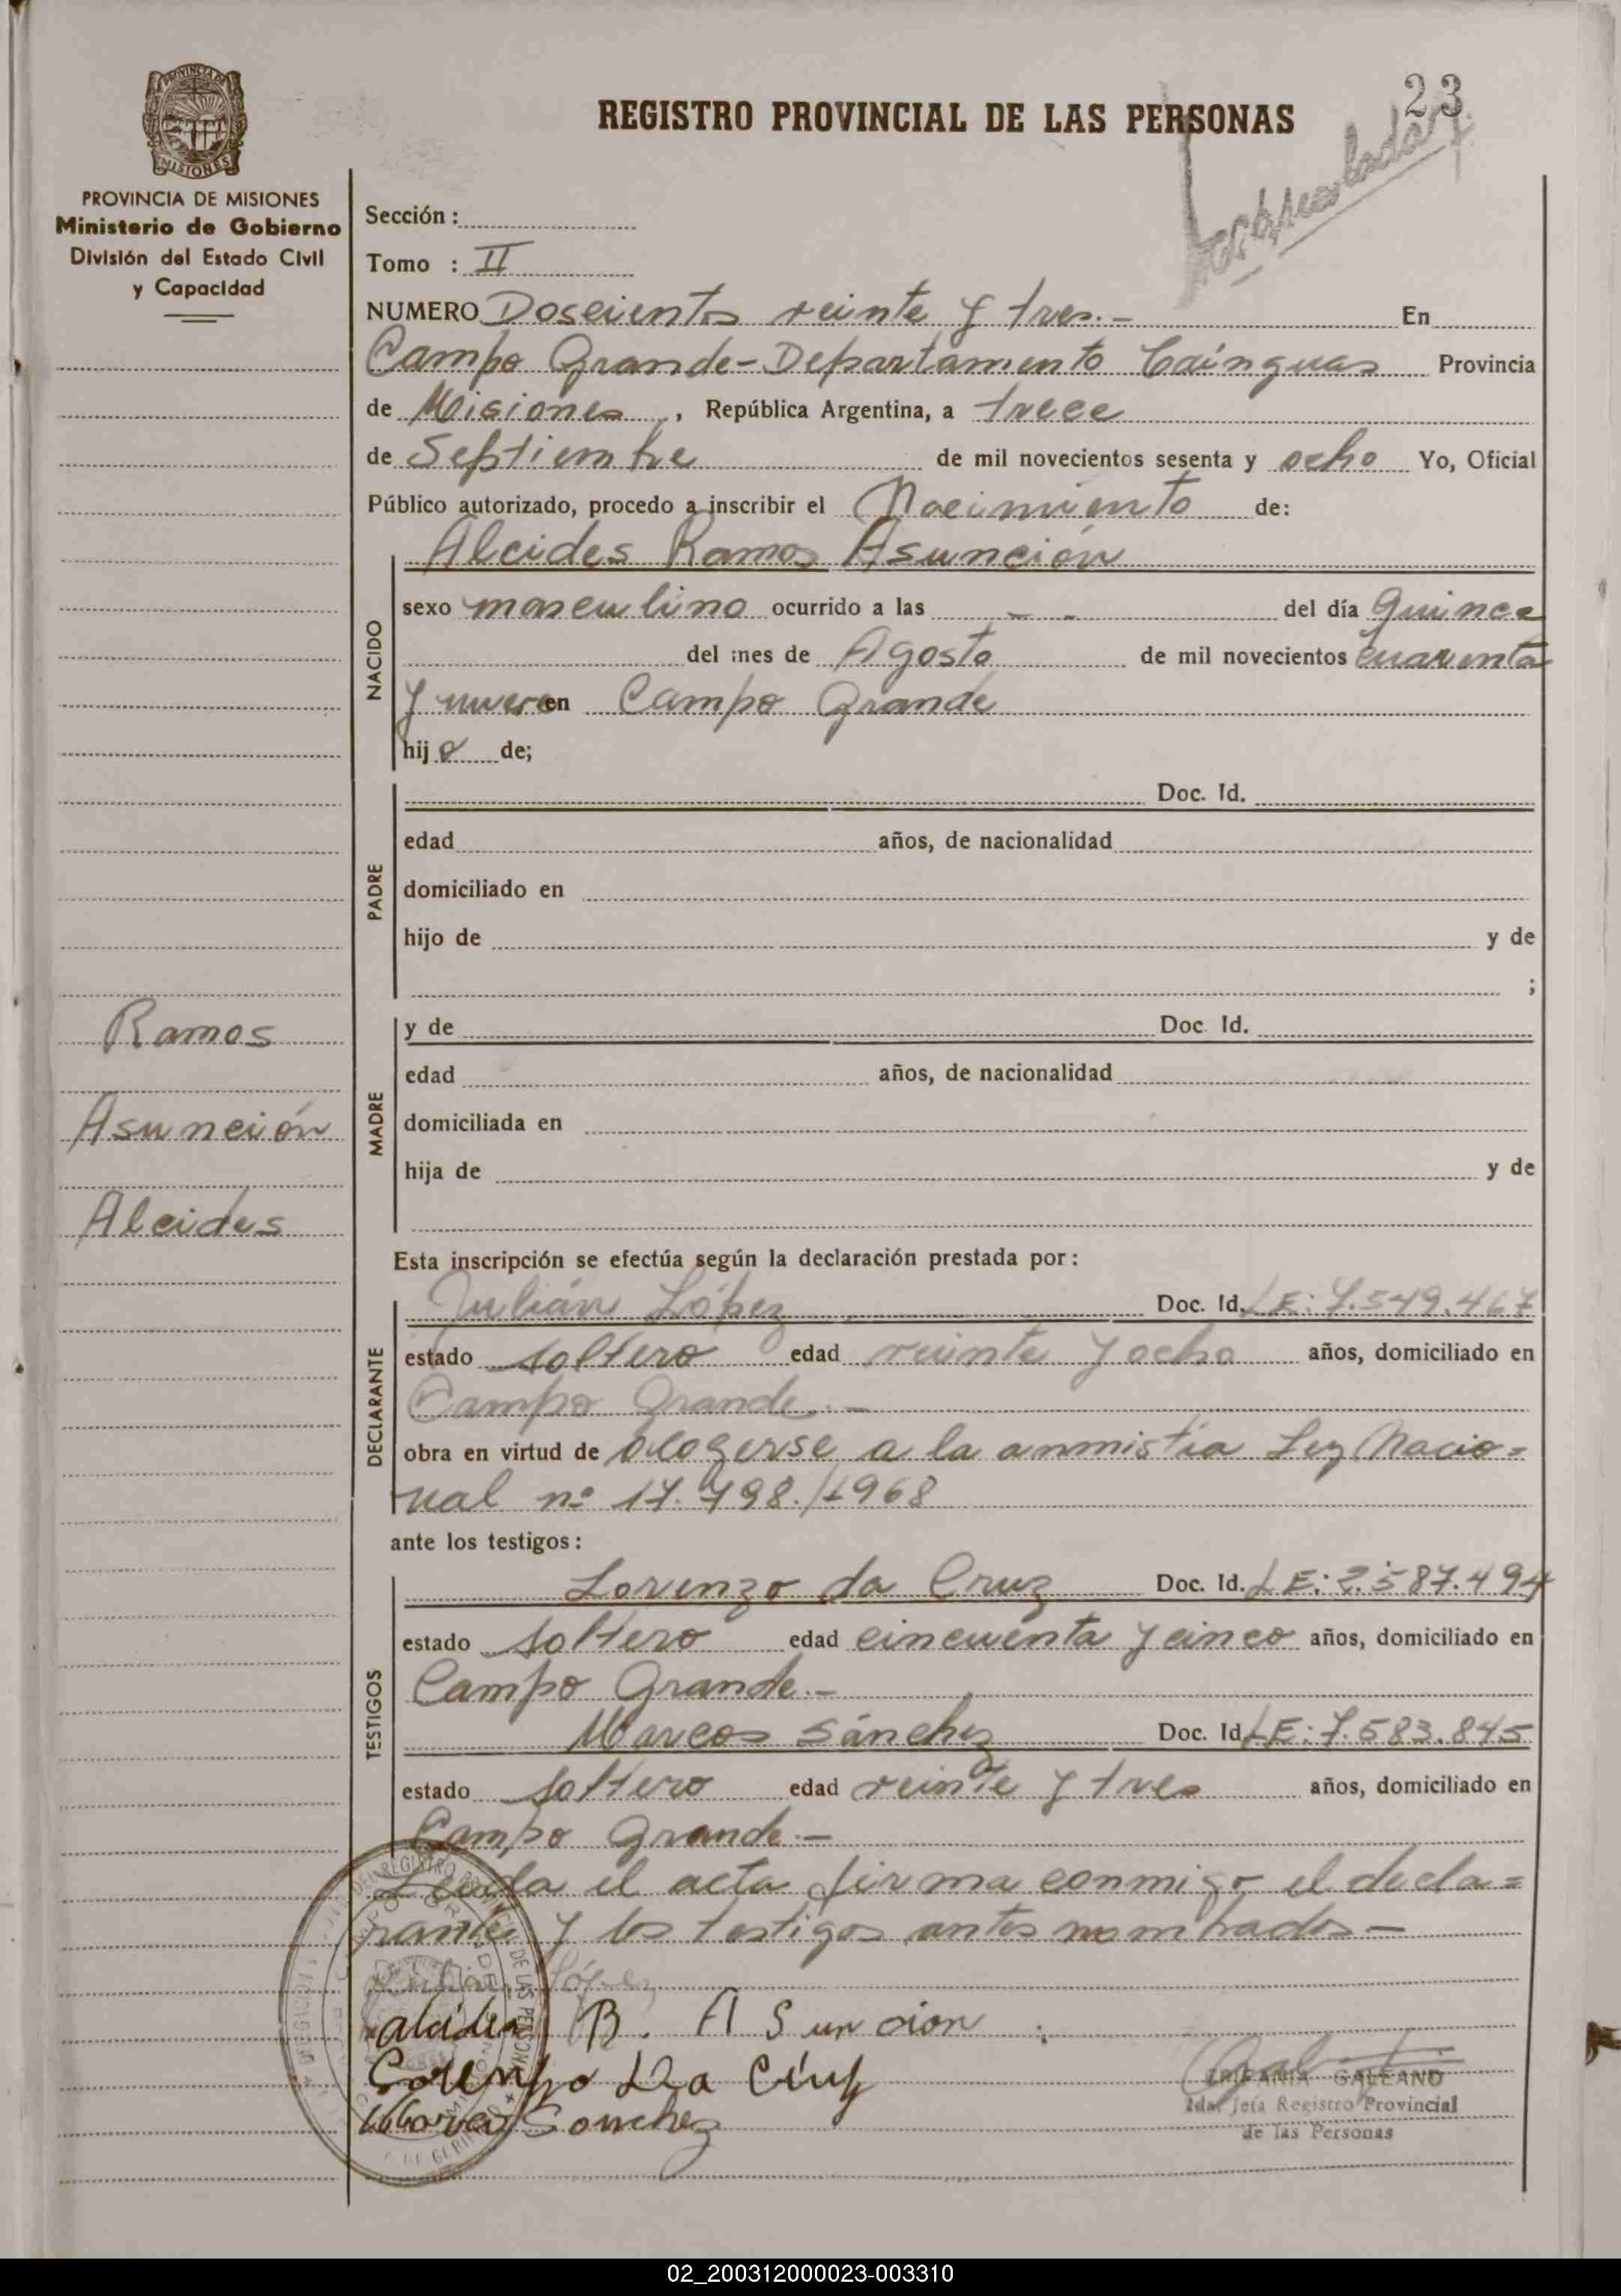 23
REGISTRO PROVINCIAL DE LAS PERSONAS
PROVINCIA DE MISIONES
Ministerio de Gobierno
División del Estado Civil
y Capacidad
Sección :
Tomo : II
NUMERO Doscientos veinte y tres.- En
Campo Grande - Departamento Cainguas Provincia
de Misiones, República Argentina, a trece
de Septiembre de mil novecientos sesenta y ocho Yo, Oficial
Público autorizado, procedo a inscribir el Nacimiento de:
NACIDO
Alcides Ramos Asunción
sexo masculino ocurrido a las - - del día quince
del mes de Agosto de mil novecientos cuarenta
y nueve en Campo Grande
hijo de;
PADRE
Doc. Id.
edad años, de nacionalidad
domiciliado en
hijo de y de
;
Ramos
Asunción
Alcides
MADRE
y de Doc. Id.
edad años, de nacionalidad
domiciliada en
hija de y de
Esta inscripción se efectúa según la declaración prestada por :
DECLARANTE
Julián López Doc. Id. LE: 7.549.467
estado soltero edad veinte y ocho años, domiciliado en
Campo Grande.-
obra en virtud de acogerse a la anmistia Ley Nacio=
nal nº 17.798./1968
ante los testigos :
TESTIGOS
Lorenzo da Cruz Doc. Id. LE: 2.587.494
estado soltero edad cincuenta y cinco años, domiciliado en
Campo Grande.-
Marcos Sánchez Doc. Id. LE: 7.583.845
estado soltero edad veinte y tres años, domiciliado en
Campo Grande.-
Leida el acta firma conmigo el decla=
rante y los testigos antes nombrados-
Julián López
alcides R. ASuncion
Lorenzo Da Cruz
Marcos Sanchez
EPIFANIA GALEANO
Jefa Registro Provincial
de las Personas
02_200312000023-003310